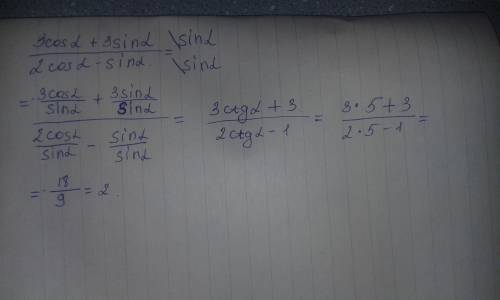 (3cosα + 3sinα)/(2cosα - sinα) = \sinα \sinα
= (3cosα/sinα + 3sinα/sinα)/(2cosα/sinα - sinα/sinα) = (3ctgα + 3)/(2ctgα - 1) = (3·5+3)/(2·5-1) =
= 18/9 = 2.